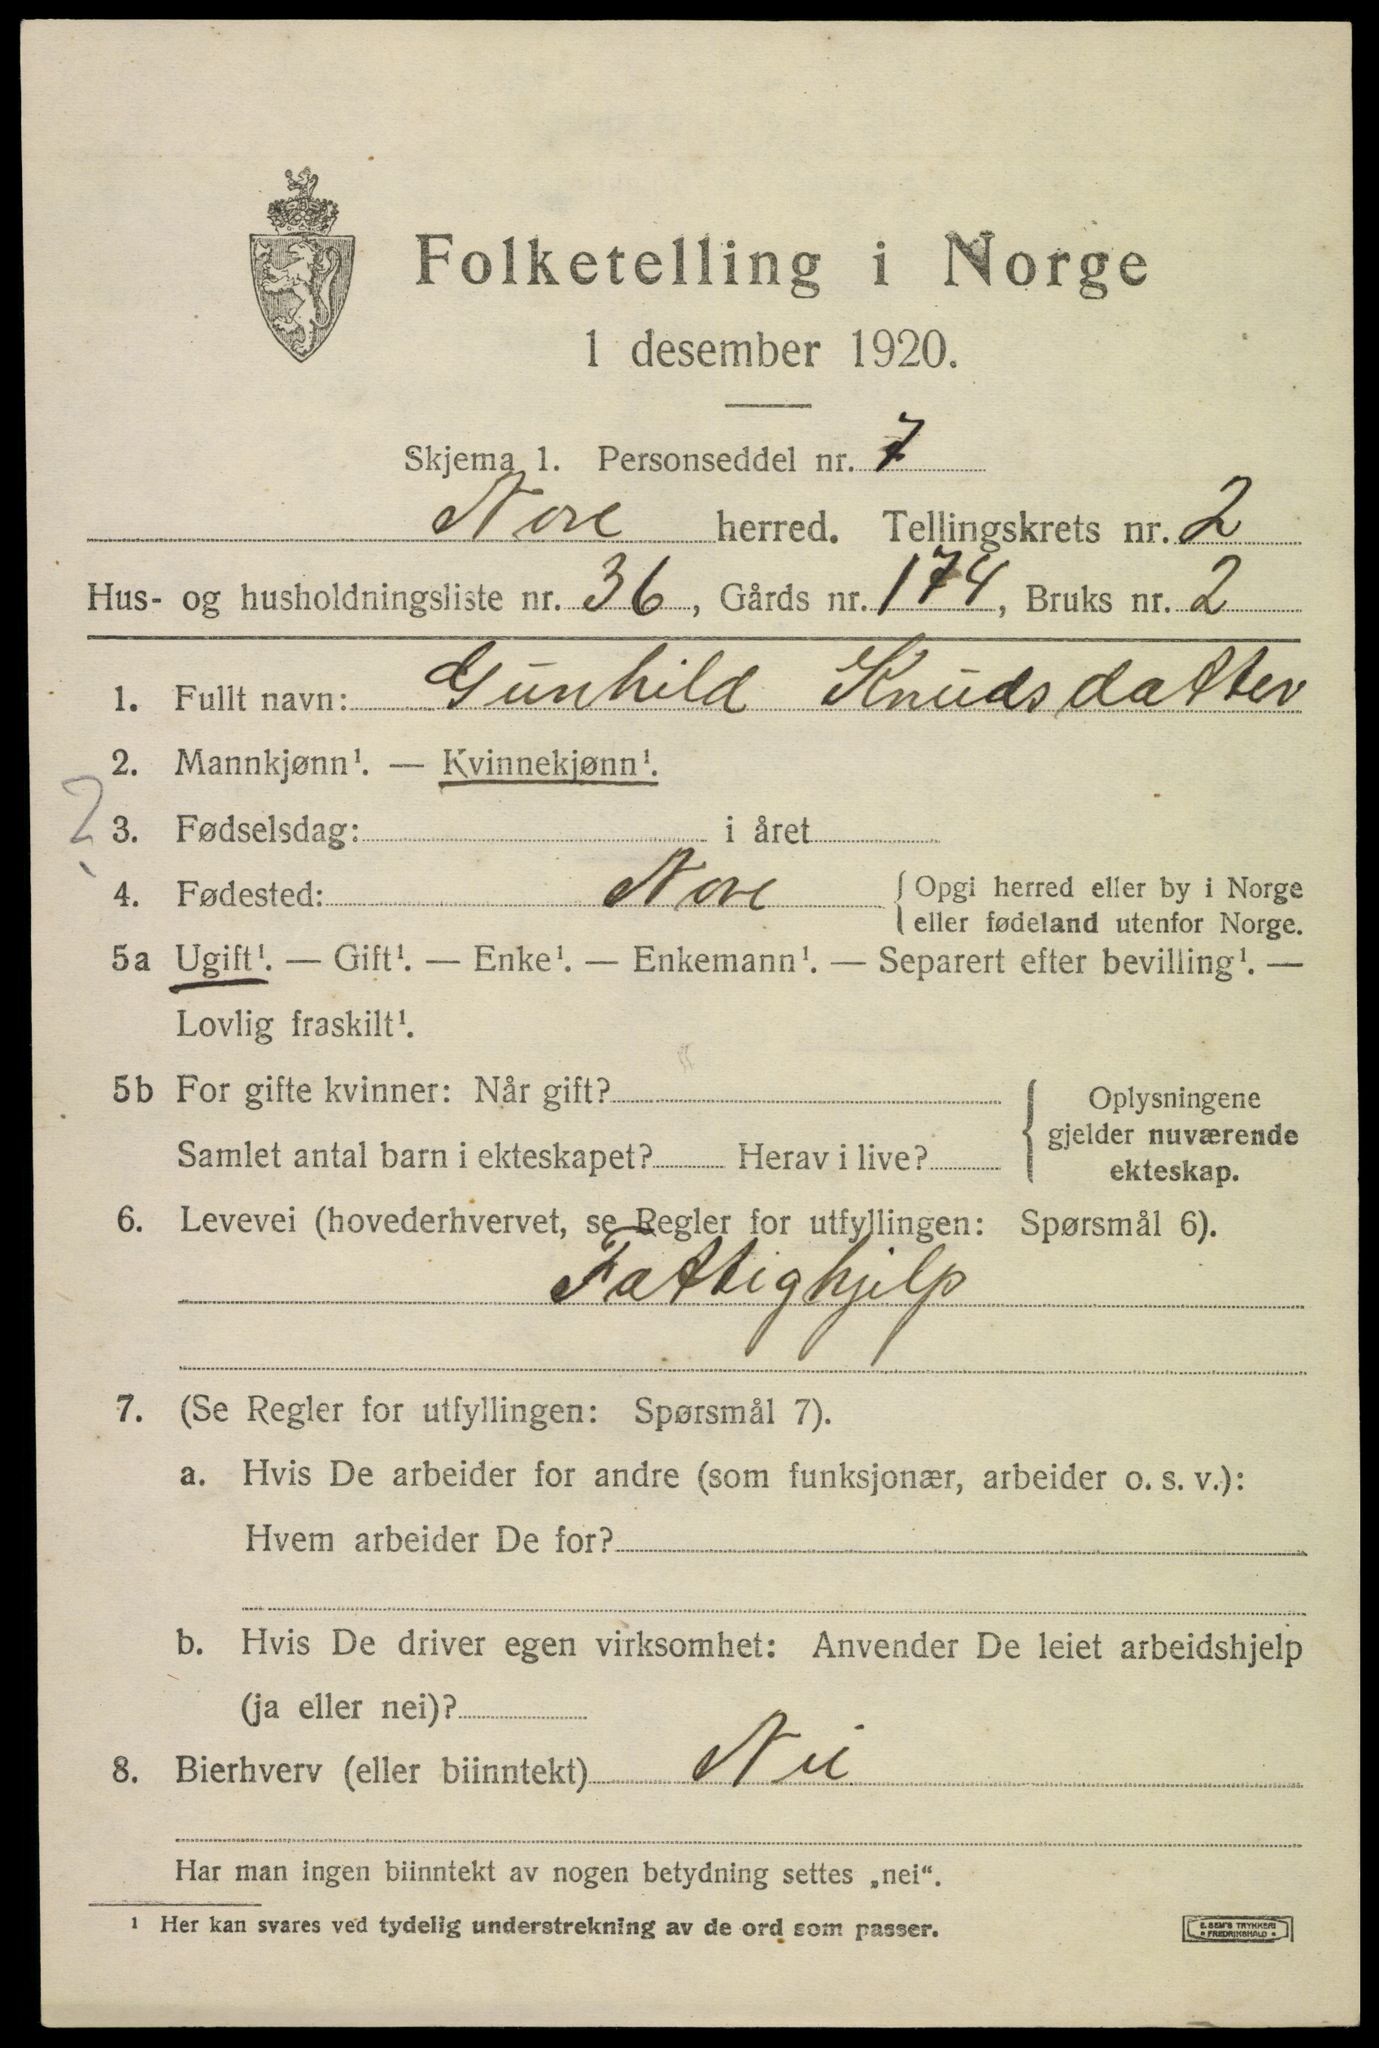 Folketelling i Norge
1 desember 1920.
Skjema 1. Personseddel nr. 7
Nore herred. Tellingskrets nr. 2
Hus- og husholdningsliste nr. 36, Gårds nr. 174, Bruks nr. 2
1. Fullt navn: Gunhild Knudsdatter
2. Mannkjønn¹. — Kvinnekjønn¹.
?
3. Fødselsdag: i året
4. Fødested: Nore { Opgi herred eller by i Norge
eller fødeland utenfor Norge.
5a Ugift¹. — Gift¹. — Enke¹. — Enkemann¹. — Separert efter bevilling¹. —
Lovlig fraskilt¹.
5b For gifte kvinner: Når gift?
Samlet antal barn i ekteskapet? Herav i live?
{ Oplysningene
gjelder nuværende
ekteskap.
6. Levevei (hovederhvervet, se Regler for utfyllingen: Spørsmål 6).
Fattighjelp
7. (Se Regler for utfyllingen: Spørsmål 7).
a. Hvis De arbeider for andre (som funksjonær, arbeider o. s. v.):
Hvem arbeider De for?
b. Hvis De driver egen virksomhet: Anvender De leiet arbeidshjelp
(ja eller nei)?
8. Bierhverv (eller biinntekt) Nei
Har man ingen biinntekt av nogen betydning settes „nei“.
¹ Her kan svares ved tydelig understrekning av de ord som passer.
E. SEM'S TRYKKERI
FREDRIKSHALD